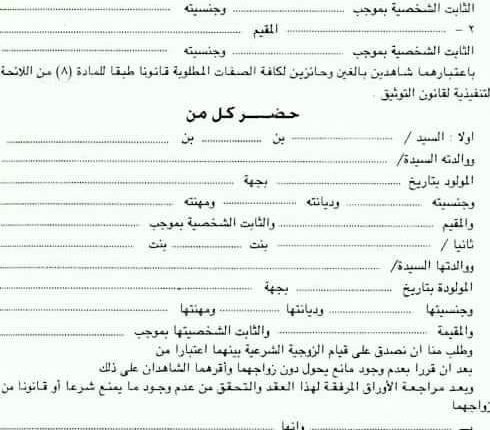 الثابت الشخصية بموجب .................... وجنسيته ....................
٢ - .................... المقيم ....................
الثابت الشخصية بموجب .................... وجنسيته ....................
باعتبارهما شاهدين بالغين وحائزين لكافة الصفات المطلوبة قانونا طبقا للمادة (٨) من اللائحة
لتنفيذية لقانون التوثيق .
حضـــر كل من
اولا : السيد / .................... بن .................... بن ....................
ووالدته السيدة/ ....................
المولود بتاريخ .................... بجهة ....................
وجنسيته .................... وديانته .................... ومهنته ....................
والمقيم .................... والثابت الشخصية بموجب ....................
ثانيا / .................... بنت .................... بنت ....................
ووالدتها السيدة/ ....................
المولودة بتاريخ .................... بجهة ....................
وجنسيتها .................... وديانتها .................... ومهنتها ....................
والمقيمة .................... والثابت الشخصيتها بموجب ....................
وطلب منا ان نصدق على قيام الزوجية الشرعية بينهما اعتبارا من
بعد ان قررا بعدم وجود مانع يحول دون زواجهما وأقرهما الشاهدان على ذلك
وبعد مراجعة الأوراق المرفقة لهذا العقد والتحقق من عدم وجود ما يمنع شرعا أو قانونا من
زواجهما
.................... وانها ....................